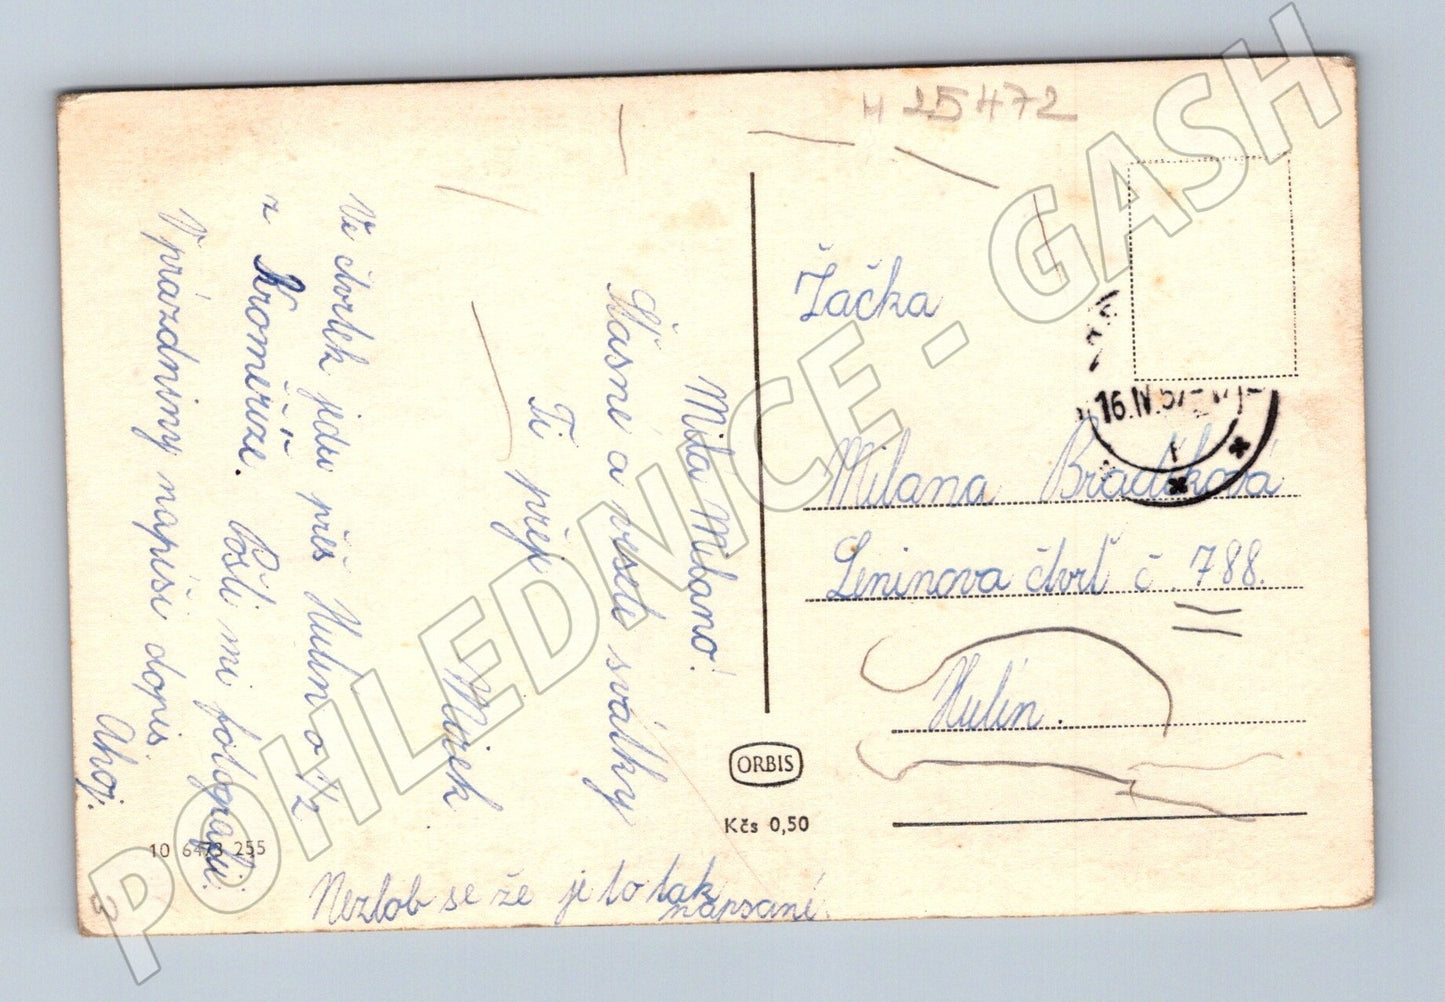 H 25472
Milá Milano!
Šťasné a veselé svátky
Ti přeji
Mirek
Ve čtvrtek jedu přes Hulín o ½
z Kroměříže. Pošli mi fotografii.
V prázdniny napiši dopis
Ahoj.
Nezlob se že je to tak
napsané.
Žačka
Milana Bradíková
Leninova čtvrť č. 788.
Hulín.
16.IV.57
ORBIS
Kčs 0,50
10 6473 255
POHLEDNICE - GASH